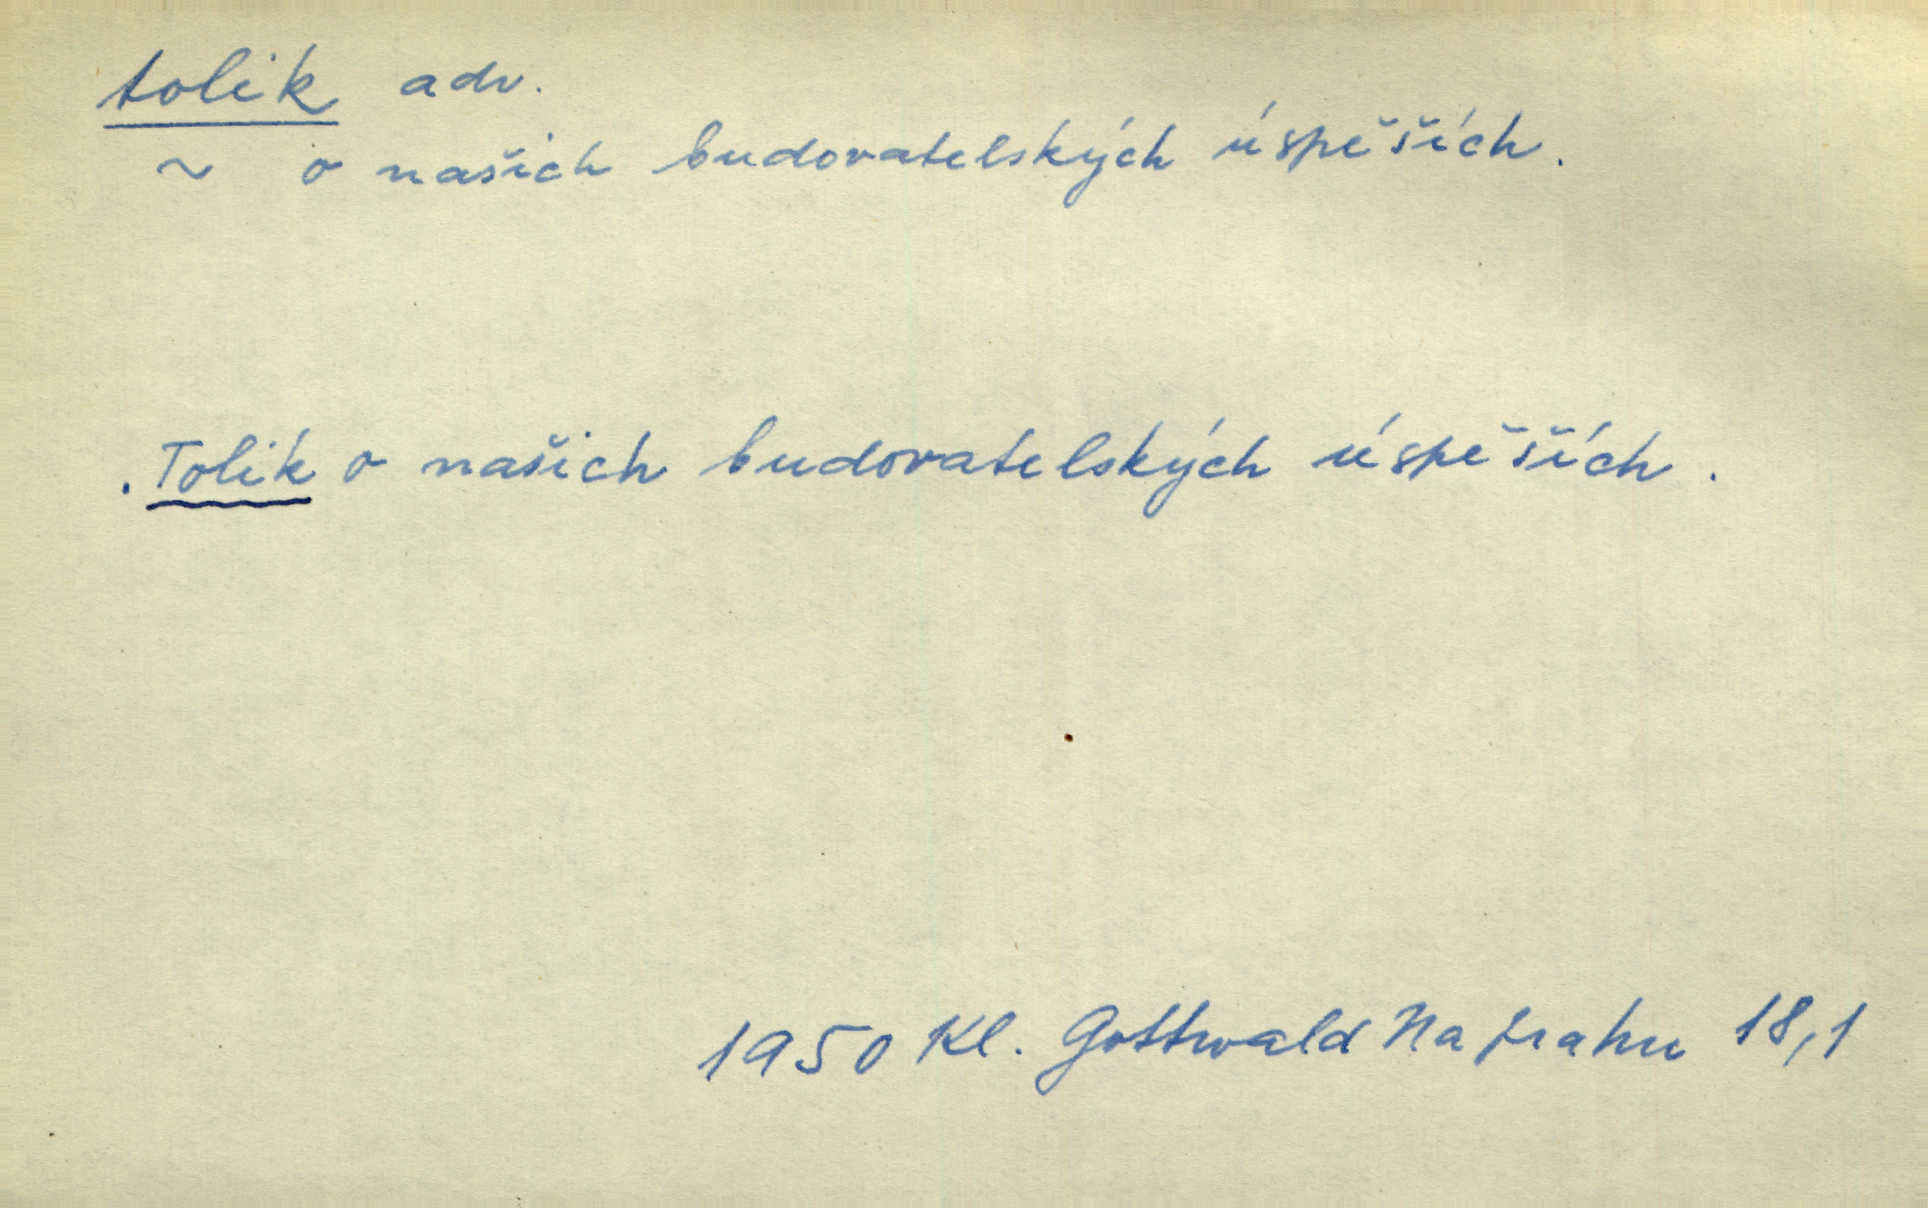 tolik adv.
~ o našich budovatelských úspěších.
. Tolik o našich budovatelských úspěších.
1950 Kl. Gottwald Na prahu 18,1